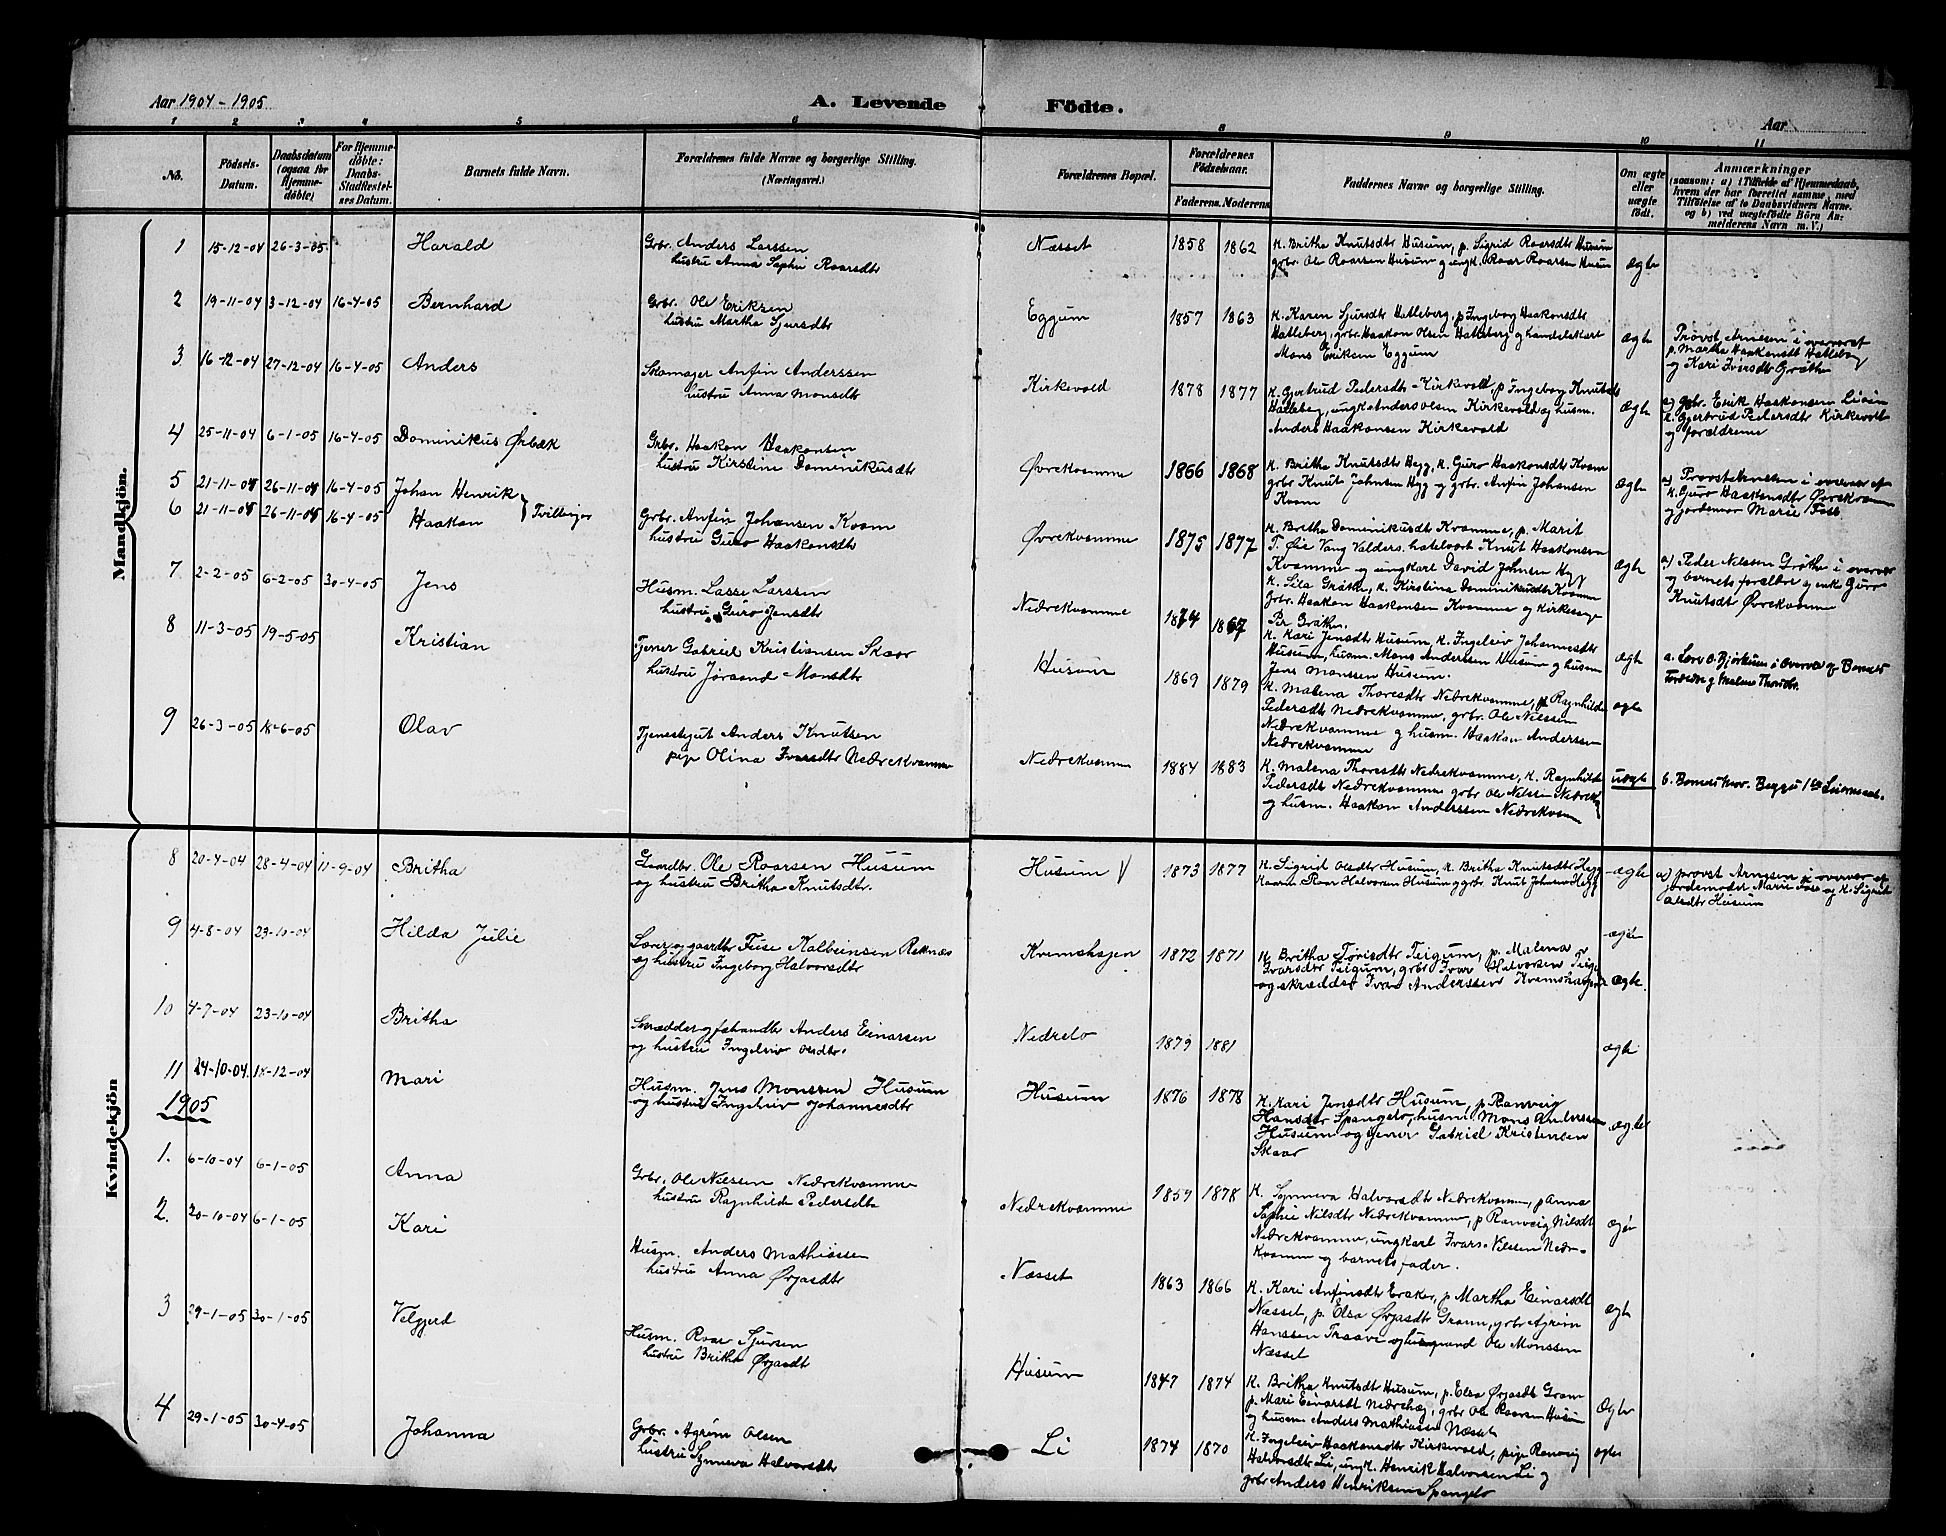 Aar 1904-1905
A. Levende Födte.
Aar
1 2 3 4 5 6 8 9 10 11
No.
Födsels-Datum.
Daabsdatum (ogsaa for Hjemme-döbte)
For Hjemme-döbte: Daabs-Stadfestel-ses Datum.
Barnets fulde Navn.
Forældrenes fulde Navne og borgerlige Stilling.
(Næringsvei.)
Forældrenes Bopæl.
Forældrenes Födselsaar.
Faderens. Moderens
Faddernes Navne og borgerlige Stilling.
Om ægte eller uægte födt.
Anmærkninger
(saasom: a) i Tilfælde af Hjemmedaab,
hvem der har forrettet samme, med
Tilföielse af to Daabsvidners Navne.
og b) ved uægtefödte Börn An-
melderens Navn m. V.)
Mandkjön.
1 15-12-04 26-3-05 Harald
Grbr. Anders Larssen
hustru Anna Sophie Roarsdtr
Næsset 1858 1862
K. Britha Knutsdtr Husum, p. Sigrid Roarsdtr Husum
grbr. Ole Roarsen Husum og ungk. Roar Roarsen Husum
Ægte
2 19-11-04 3-12-04 16-4-05 Bernhard
Grbr. Ole Eriksen
hustru Martha Sjursdtr
Eggum 1857 1863
K. Karen Sjursdtr Hatleberg, p. Ingeborg Haakonsdtr
Hatleberg, grbr. Haakon Olsen Hatleberg og handelskarl
Mons Eriksen Eggum
Ægte
Provst Arnesen i overvær af
p. Martha Haakensdt Hatleberg
og Kari Iversdtr Grøthe
3 16-12-04 27-12-04 16-4-05 Anders
Skomager Anfin Anderssen
hustru Anna Monsdtr
Kirkevold 1878 1877
K. Gjertrud Pedersdtr Kirkevold, p. Ingeborg Knutsdt
Hatleberg, ungk. Anders Olsen Kirkevold og husm.
Anders Haakonsen Kirkevold
Ægte
a) grbr. Erik Haakonsen
K. Gjertrud Pedersdtr Kirkevold
og forældrene
4 25-11-04 6-1-05 16-4-05 Dominikus Ørbæk
Grbr. Haakon Haakonsen
hustru Kirstine Dominikusdtr
Øvrekvamme 1866 1868
K. Britha Knutsdtr Hegg, K. Guro Haakonsdtr Kvam
grbr Knut Johnsen Hegg og grbr. Anfin Johansen
Kvam
Ægte
a) Provst Arnesen i overvær af
K. Guro Haakensdtr Øvrekvam
og jordemor Marie Foss.
5 21-11-04 26-11-04 16-4-05 Johan Henrik
6 21-11-04 26-11-04 16-4-05 Haakon } Tvillinger
Grbr. Anfin Johansen Kvam
hustru Guro Haakonsdtr
Øvrekvamme 1875 1877
K. Britha Dominikusdtr Kvamme, p. Marit
T. Øie Vang Valders. hotelvært Knut Haakonsen
Kvamme og ungkarl David Johnsen Hegg
Ægte
a) Peder Nilssen Grøthe i overvær
og barnets forældre og enke Guro
Knutsdt Øvrekvamme
7 2-2-05 6-2-05 30-4-05 Jens
Husm. Lasse Larssen
hustru Guro Jensdtr
Nedrekvamme 1874 1867
K. Sila Grøthe, K. Kirstina Dominikusdtr Kvamm
Grbr. Haakon Haakonsen Kvamme og kirkesanger
Pr. Grøthe.
Ægte
8 11-3-05 19-5-05 Kristian
Tjener Gabriel Kristiansen Skaar
hustru Jørand Monsdtr
Husum 1869 1879
K. Kari Jensdtr Husum, K. Ingeleiv Johannesdtr
Husum, husm. Mons Anderssen Husum og husm
Jens Monsen Husum.
ægte
9 26-3-05 18-6-05 Olav
Tjenestegut Anders Knutsen
pige Olina Ivarsdtr Nedrekvamme
Nedrekvamm 1884 1883
K. Malena Thoresdtr Nedrekvamme, p. Ragnhilda
Pedersdt Nedrekvamme, grbr. Ole Nilssen
Nedrekvamme og husm. Haakon Anderssen
Nedrekvamme
K. Malena Thoresdtr Nedrekvamme, K. Ragnhilda
Pedersdt Nedrekvamme grbr Ole Nilssen Nedrek
og husm. Haakon Anderssen Nedrekvam
uægte
Kvindekjön
8 20-4-04 28-4-04 11-9-04 Britha
Gaardbr. Ole Roarsen Husum
og hustru Britha Knutsdtr.
Husum V 1873 1877
K. Sigrid Olsdtr Husum, K. Britha Knutsdtr Hegg
Kaarm Roar Halvorsen Husum og grbr. Knut Johnsen Hegg
ægte
a) provst Arnesen i overvær af
jordemoder Marie Foss og K. Sigrid
Olsdtr Husum
9 4-8-04 23-10-04 Hilda Julie
Lærer og gaardbr Fuse Kolbeinsen Reknæs
og hustru Ingeborg Halvorsdtr
Kvemshagen 1872 1871
K. Britha Torisdtr Teigum, p. Malena
Ivarsdtr Teigum, grbr Ivar Halvorsen Teig
og skrædder Ivar Anderssen Kvemshagen
ægte
Ægte.
10 4-7-04 23-10-04 Britha
Skrædder og fæhandlr Anders Einarsen
og hustru Ingeleiv Olsdtr.
Nedrelo 1879 1881
ægte
11 24-10-04 18-12-04 Mari
Husm. Jens Monssen Husum
og hustru Ingeleiv Johannesdtr
Husum 1876 1878
K. Kari Jensdtr Husum, p. Ranveig
Hansdtr Spangelo, husm. Mons Anderssen
Husum og tjener Gabriel Kristensen
Skaar
ægte
1905
1. 6-10-04 6-1-05 Anna
Grbr. Ole Nilssen Nedrekvamme
hustru Ragnhilde Pedersdtr
Nedrekvamme 1859 1878
K. Synneva Halvorsdtr Nedrekvamme, p Anna
Sophie Nilsdtr Nedrekvamme, p Ranveig Nilsdt
Nedrekvamme, ungkarl Ivars Nilssen Nedr-
kvamm og barnets fader.
2. 20-10-04 6-1-05 Kari
Husm. Anders Mathiassen
hustru Anna Ørjasdtr
Næsset 1863 1866
K. Kari Anfinsdtr Eraker, p Martha Einarsdt
Næsset, p. Elsa Ørjasdtr Gram, grbr Agrim
Hanssen Traave og husmand Ole Monssen
Næsset
Ægte
3 29-1-05 30-1-05 Velgjerd
Husm. Roar Sjursen
hustru Britha Ørjasdt
Husum 1847 1874
K. Britha Knutsdtr Husum, p. Elsa Ørjasdt Gram
p. Mari Eivarsdt Nedrehæg, grbr Ole Roarsen Husum
og husm Anders Mathiassen Næsset
Ægte
4 29-1-05 30-4-05 Johanna
Grbr. Agrim Olsen
hustru Synneva Halvorsdtr
Li 1874 1870
K. Ingeleiv Haakonsdtr Kirkevold, pige Ranveig
Halvorsdtr Li, ungk. Henrik Halvorsen Li og
grbr Anders Henriksen Spangelo
ægte